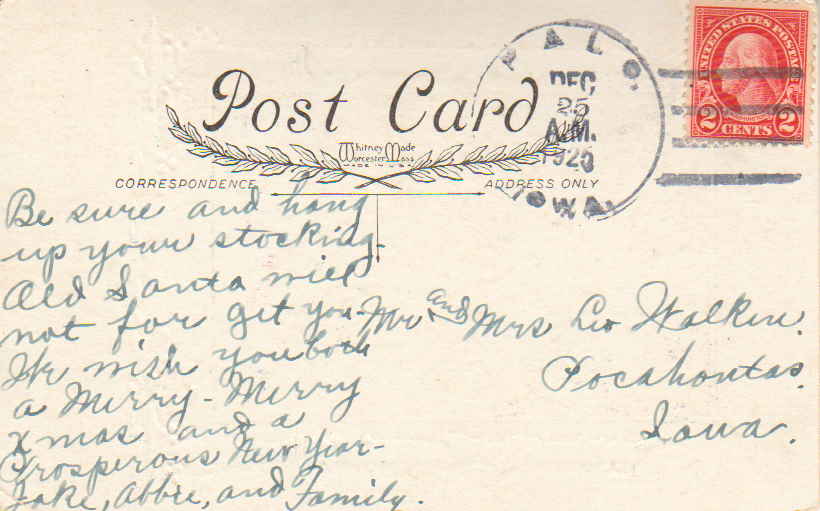 Post Card
Whitney Made
Worcester Mass
MADE IN U.S.A.
CORRESPONDENCE
ADDRESS ONLY
PALO.
DEC
25
A.M.
IOWA.
UNITED STATES POSTAGE
2 CENTS 2
Be sure and hang
up your stocking.
Old Santa will
not for get you.
We wish you both
a Merry-Merry
Xmas and a
Prosperous New Year-
Jake, Abbie, and Family.
Mr and Mrs Leo
Pocahontas.
Iowa.